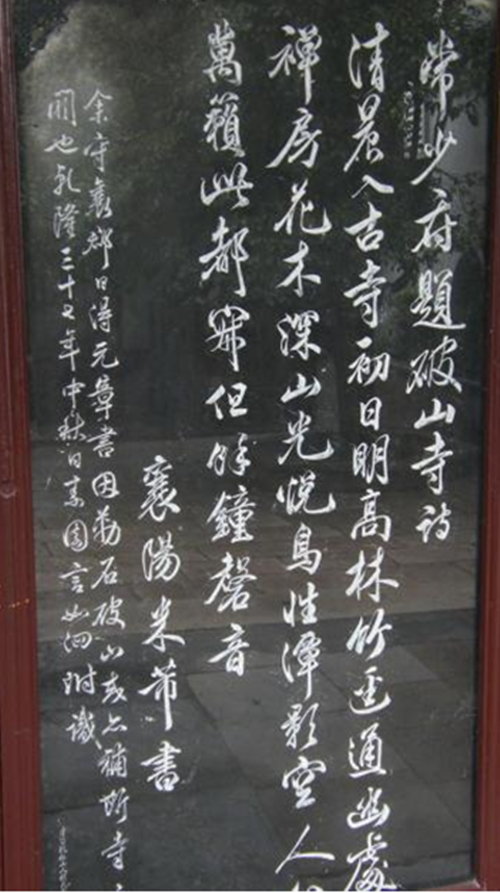 常少府題破山寺詩
清晨入古寺初日明高林竹逕通幽處
禅房花木深山光悅鳥性潭影空人
萬籟此都寂但餘鐘磬音
襄陽米芾書
余守襄鄖日得元章書因勒石破山或亦補斯寺
闕也乾隆三十七年中秋日素園言如泗附識